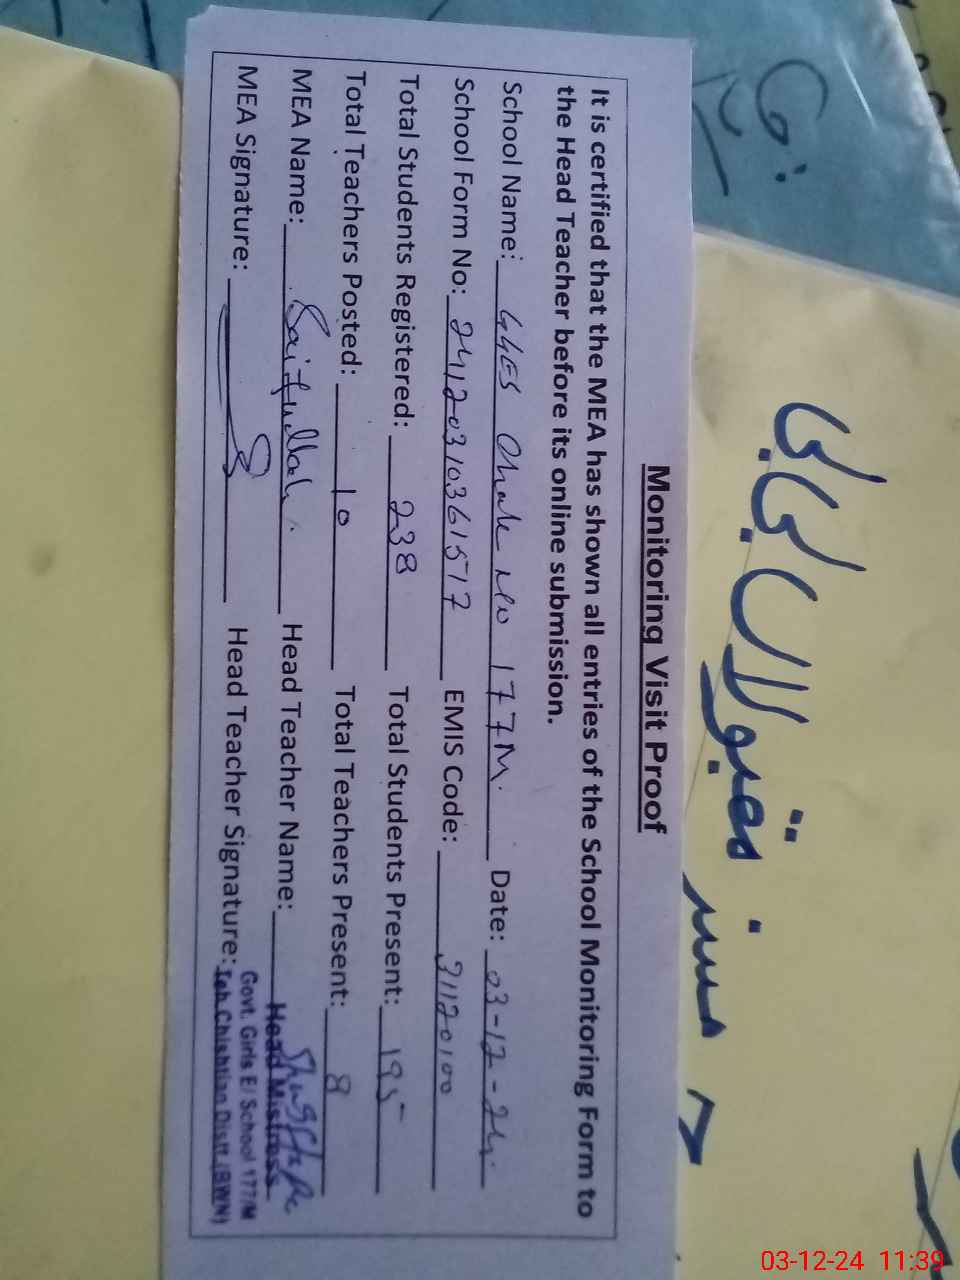 Monitoring Visit Proof
It is certified that the MEA has shown all entries of the School Monitoring Form to
the Head Teacher before its online submission.
School Name: GGES Chak No 177M. Date: 03-12-24.
School Form No: 241203103361517 EMIS Code: 31120100
Total Students Registered: 238 Total Students Present: 195
Total Teachers Posted: 10 Total Teachers Present: 8
MEA Name: Saifullah. Head Teacher Name:
MEA Signature: Head Teacher Signature:
Head Mistress
Govt. Girls E/ School 177/M
Teh Chishtian Distt.(BWN)
03-12-24 11:39